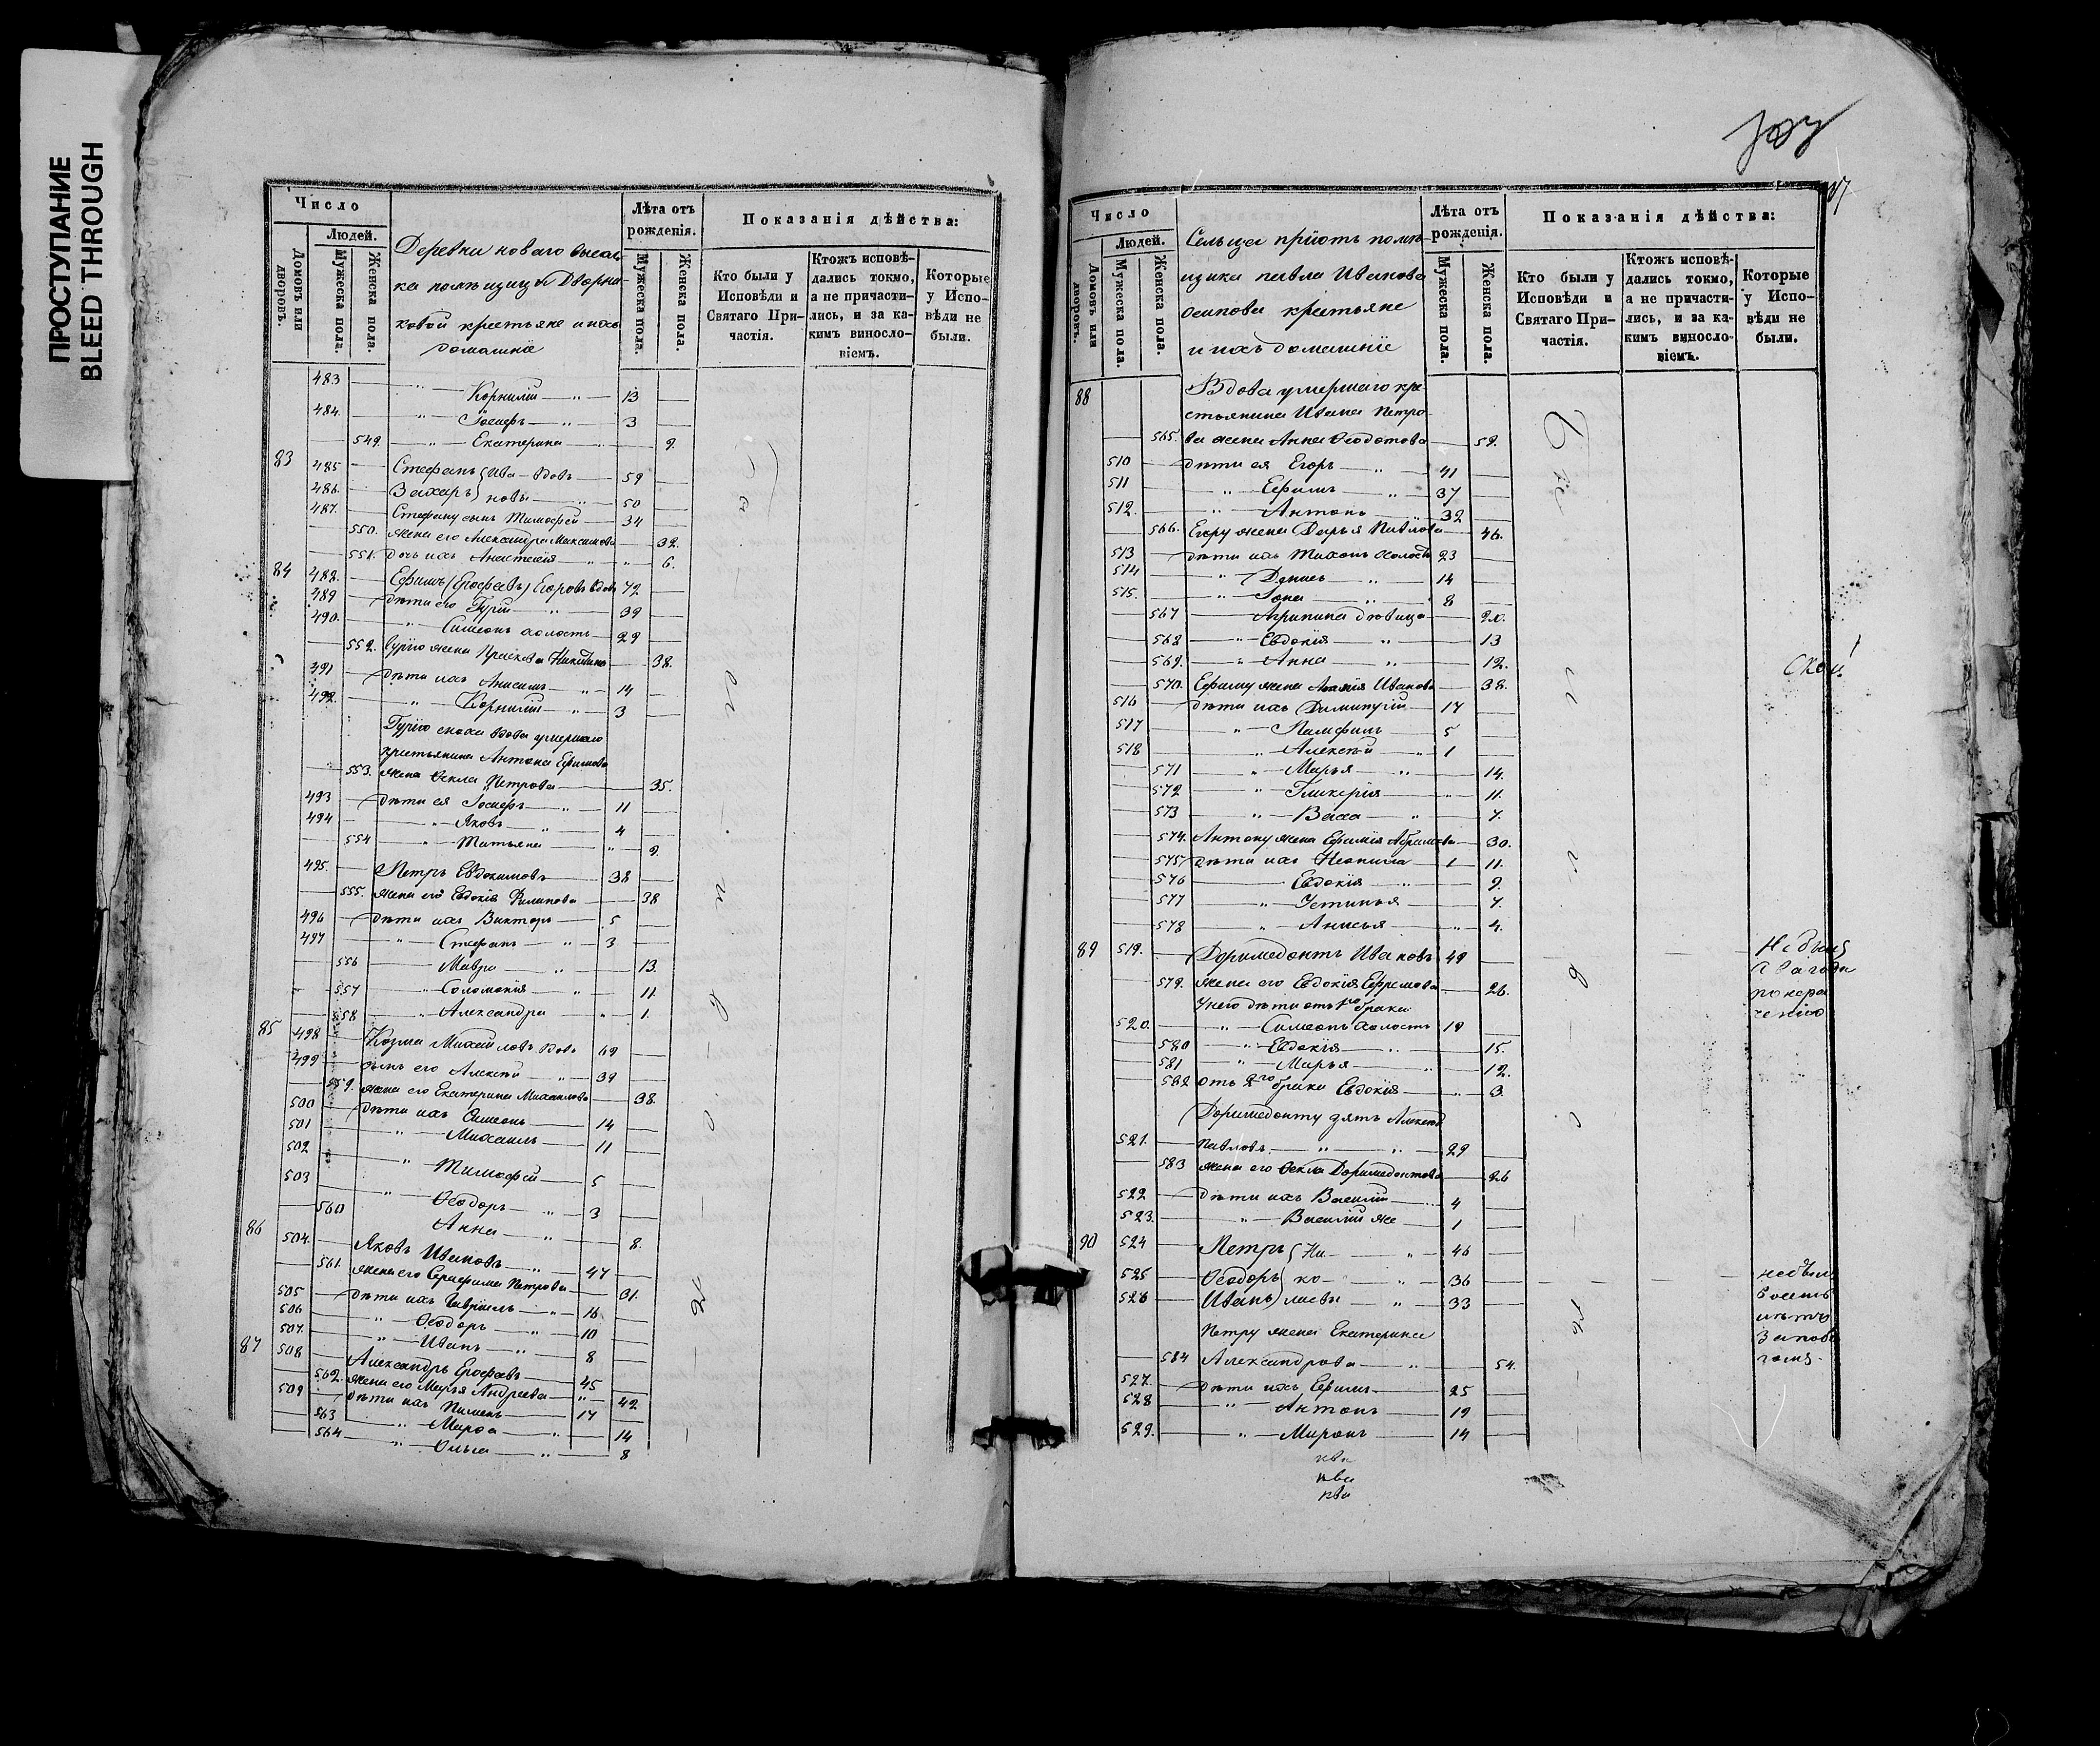 ПРОСТУПАНИЕ
BLEED THROUGH
Число
Людей.
Домовъ или дворовъ.
Мужеска пола.
Женска пола.
Деревни новаго высел-
ка помѣщицы Дворни-
ковой крестьяне и ихъ
домашніе
Лѣта отъ рожденія.
Мужеска пола.
Женска пола.
Показанія дѣйства:
Кто были у Исповѣди и Святаго Причастія.
Ктожъ исповѣдались токмо, а не причастились, и за каким винословіемъ.
Которые у Исповѣди не были.
483 " Корнилій " 13
484. " Іосифъ " 3
549. " Екатерина " 9.
83 485 Стефанъ Ива- вдовъ 59
486. Захаръ новы " 50
487. Стефану сынъ Тимофей 34
550. жена его Александра Максимова 32.
551. дочь ихъ Анастасія " " 6.
84 488. Ефимъ (Ерофѣевъ) Егоровъ вдов 72
489 дѣти его Гурій " 39
490. " Симеонъ холостъ 29
552. Гурію жена Прасковья 38.
491 дѣти ихъ Анисимъ " 14
492. " Корнилій " 3
Гурію сноха вдова умершаго
крестьянина Антона Ефимова
553. жена Ѳекла Петрова 35.
493 дѣти ея Іосифъ " 11
494 " Яковъ " 4
554 " Татьяна " 9.
495. Петръ Евдокимовъ 38
555. жена его Евдокія Филипова 38
496 дѣти ихъ Викторъ 5
497 " Стефанъ " 3
556 Мавра " 13.
557 " Соломонія " 11.
558 " Александра " 1.
85 498 Козма Михайловъ вдовъ 69
499 сынъ его Алексѣй " 39
559. жена его Екатерина Михайлова 38.
500 дѣти ихъ Симеонъ 14
501 " Михаилъ 11
502 " Тимофей 5
503 " Ѳеодоръ " 3
560 Анна " 8.
86 504. Яковъ Ивановъ " 47
561. жена его Серафима Петрова 31.
505 дѣти ихъ Гавріилъ " 16
506 " Ѳеодоръ " 10
507. " Иванъ " 8
87 508 Александръ Ерофѣевъ 45
562. жена его Марья Андреева " 42
509 дѣти ихъ Пименъ 17
563 " Марѳа " 14
564 " Ольга " 8
Число
Людей.
Домовъ или дворовъ.
Мужеска пола.
Женска пола.
Сельца пріютъ помѣ-
щика павла Иванова
осипова крестьяне
и ихъ домашніе
Лѣта отъ рожденія.
Мужеска пола.
Женска пола.
Показанія дѣйства:
Кто были у Исповѣди и Святаго Причастія.
Ктожъ исповѣдались токмо, а не причастились, и за каким винословіемъ.
Которые у Исповѣди не были.
88 Вдова умершаго кре-
стьянина Ивана Петро-
565. ва жена Анна Ѳеодотова 59.
510 дѣти ея Егоръ " 41
511 " Ефимъ " 37
512. " Антонъ " 32
566. Егору жена Дарья Павлова 46.
513 дѣти ихъ Тихонъ холостъ 23
514 " Денисъ " 14
515. " Іона " 8
567 Агрипина дѣвица 20.
568 " Евдокія " 13
569. " Анна " 12.
570. Ефиму жена Иванова 38.
516 дѣти ихъ Димитрій 17
517 " Памфилъ 5
518 " Алексѣй " 1
571 " Марья " 14.
572 " Гликерія " 11.
573 " Васса " 7.
574. Антону жена Ефимія Абрамова 30.
575 дѣти ихъ Неонила 11.
576 Евдокія " 9.
577 " Устинья 7.
578 " Анисья " 4.
89 519. Доримедонтъ Ивановъ 49
579. жена его Евдокія Ефремова 26.
У него дѣти отъ 1го брака
520. " Симеонъ холостъ 19
580 " Евдокія " 15.
581 " Марья " 12.
582 отъ 2го брака Евдокія " 3.
Доримедонту зять Алексѣй
521. Павловъ " " 29
583 жена его Ѳекла Доримедонтова 26
522 дѣти ихъ Василій 4
523. " Василій же 1
90 524 Петръ Ни- " 46
525 Ѳеодоръ ко- " 36
526 Иванъ лаевы " 33
Петру жена Екатерина
584 Александрова " 54.
527. дѣти ихъ Ефимъ 25
528 " Антонъ 19
529. " Миронъ 14
Не былъ
2 года